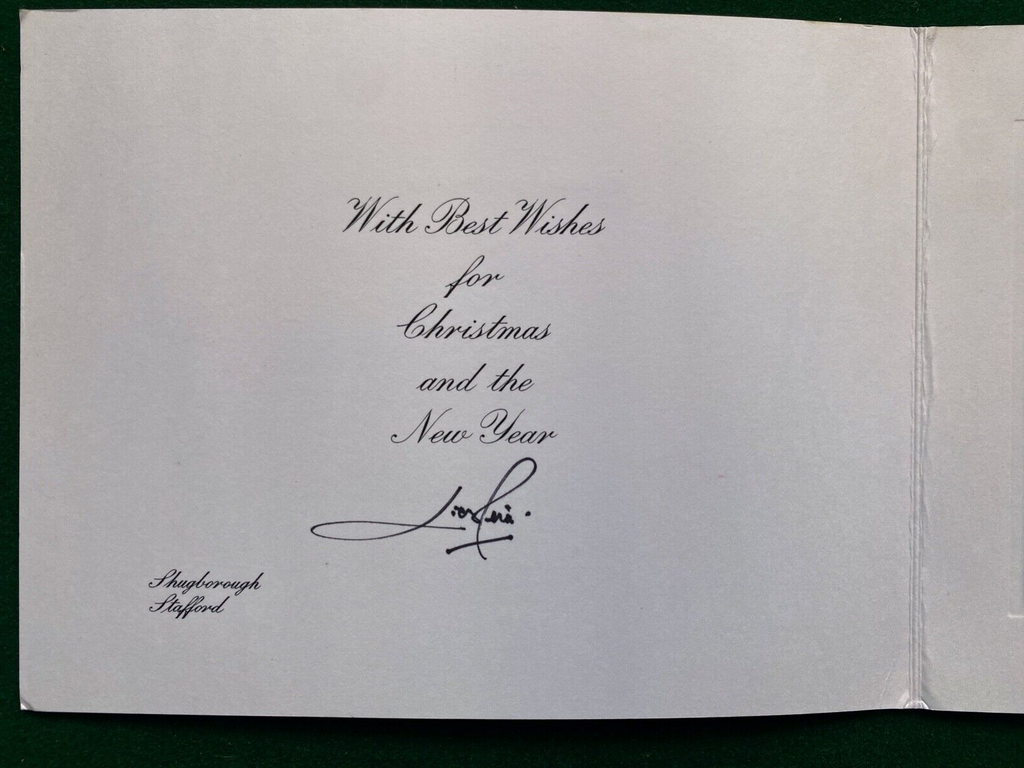 With Best Wishes
for
Christmas
and the
New Year
Shugborough
Stafford